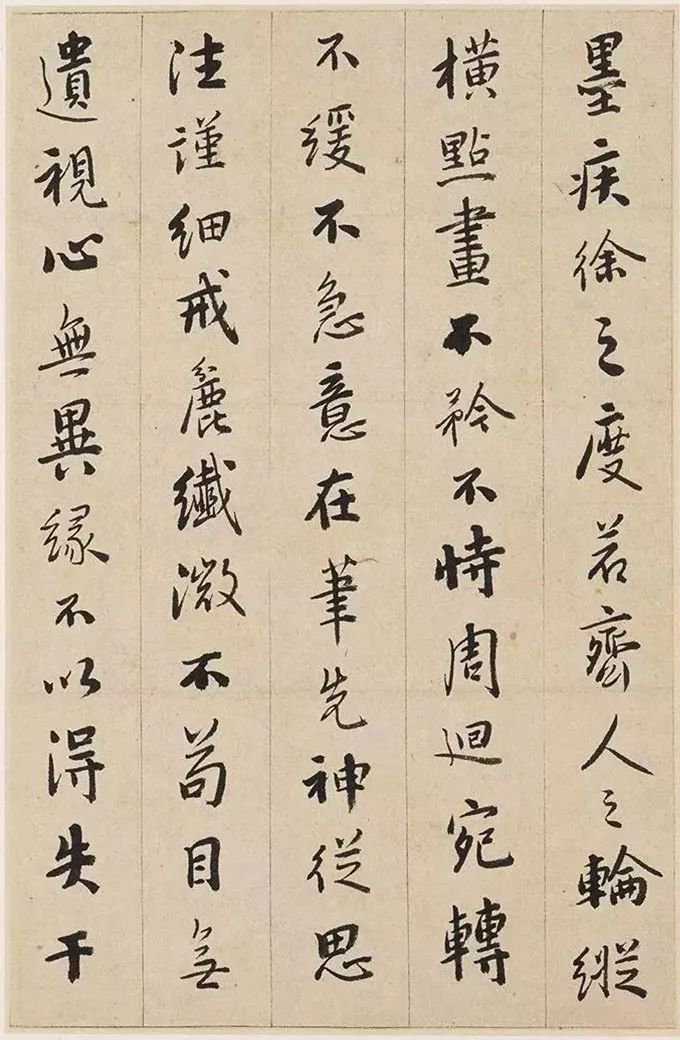 墨疾徐之度若齊人之輪縱
橫點畫不矜不恃周迴宛轉
不緩不急意在筆先神從思
注謹細戒麤纖微不苟目無
遺視心無異緣不以得失干